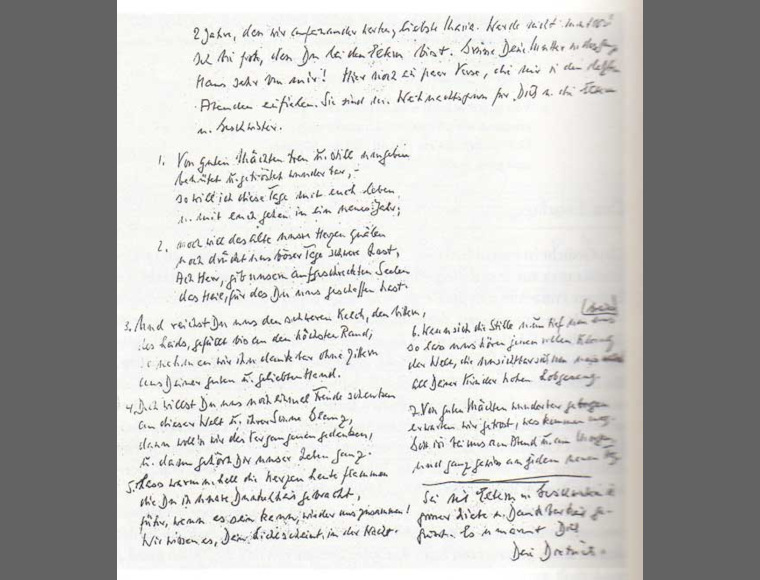 2 Jahre, dass wir aufeinander warten, liebste Maria. Werde nicht mutlos!
Ich bin froh, dass Du bei den Eltern bist. Grüsse Deine Mutter u. das ganze
Haus sehr von mir! Hier noch ein paar Verse, die mir in den letzten
Abenden einfielen. Sie sind der Weihnachtsgruss für Dich u. die Eltern
u. Geschwister.
1. Von guten Mächten treu u. still umgeben
behütet u. getröstet wunderbar, –
so will ich diese Tage mit euch leben
u. mit euch gehen in ein neues Jahr;
2. noch will das alte unsre Herzen quälen
noch drückt uns böser Tage schwere Last,
Ach Herr, gib unsern aufgeschreckten Seelen
das Heil, für das Du uns geschaffen hast.
3. Und reichst Du uns den schweren Kelch, den bittern,
des Leids, gefüllt bis an den höchsten Rand,
so nehmen wir ihn dankbar ohne Zittern
aus Deiner guten u. geliebten Hand.
4. Doch willst Du uns noch einmal Freude schenken
an dieser Welt u. ihrer Sonne Glanz,
dann woll'n wir des Vergangenen gedenken,
u. dann gehört Dir unser Leben ganz.
5. Lass warm u. hell die Kerzen heute flammen
die Du in unsre Dunkelheit gebracht,
führ, wenn es sein kann, wieder uns zusammen!
Wir wissen es, Dein Licht scheint in der Nacht.
6. Wenn sich die Stille nun tief um uns
so lass uns hören jenen vollen Klang
der Welt, die unsichtbar sich um uns weitet
all Deiner Kinder hohen Lobgesang.
7. Von guten Mächten wunderbar geborgen
erwarten wir getrost, was kommen mag.
Gott ist bei uns am Abend u. am Morgen
und ganz gewiss an jedem neuen Tag.
Sei mit Eltern u. Geschwistern in
grosser Liebe u. Dankbarkeit ge-
grüsst. Es umarmt Dich
Dein Dietrich.